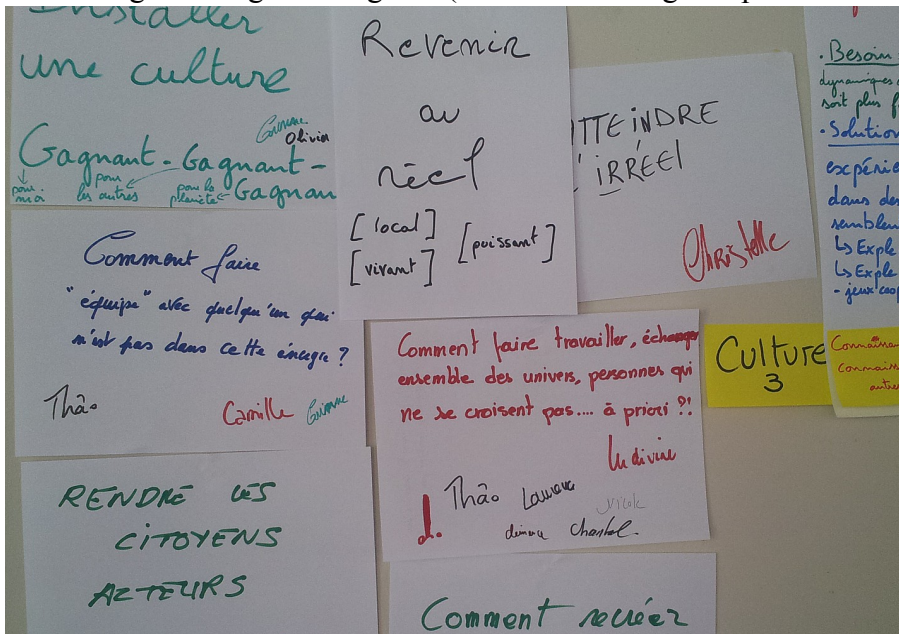 Installer
une culture
Gagnant - Gagnant -
Gagnan
Olivier
pour moi
pour les autres
pour la planète
Revenir
au
réel
[local]
[vivant]
[puissant]
TTEINDRE
IRRÉEL
Christelle
Besoin
dynamiques
soit plus
Solution
expérie
dans des
semblen
↳ Exple
↳ Exple
- jeux coop
Comment faire
"équipe" avec quelqu'un qui
n'est pas dans cette énergie ?
Thão
Camille
Comment faire travailler, échanger
ensemble des univers, personnes qui
ne se croisent pas.... à priori ?!
Ludivine
Thão
Laurence
Nicole
Chantal
Culture
3
Connaissan
Connaiss
autre
RENDRE LES
CITOYENS
ACTEURS
Comment recréer